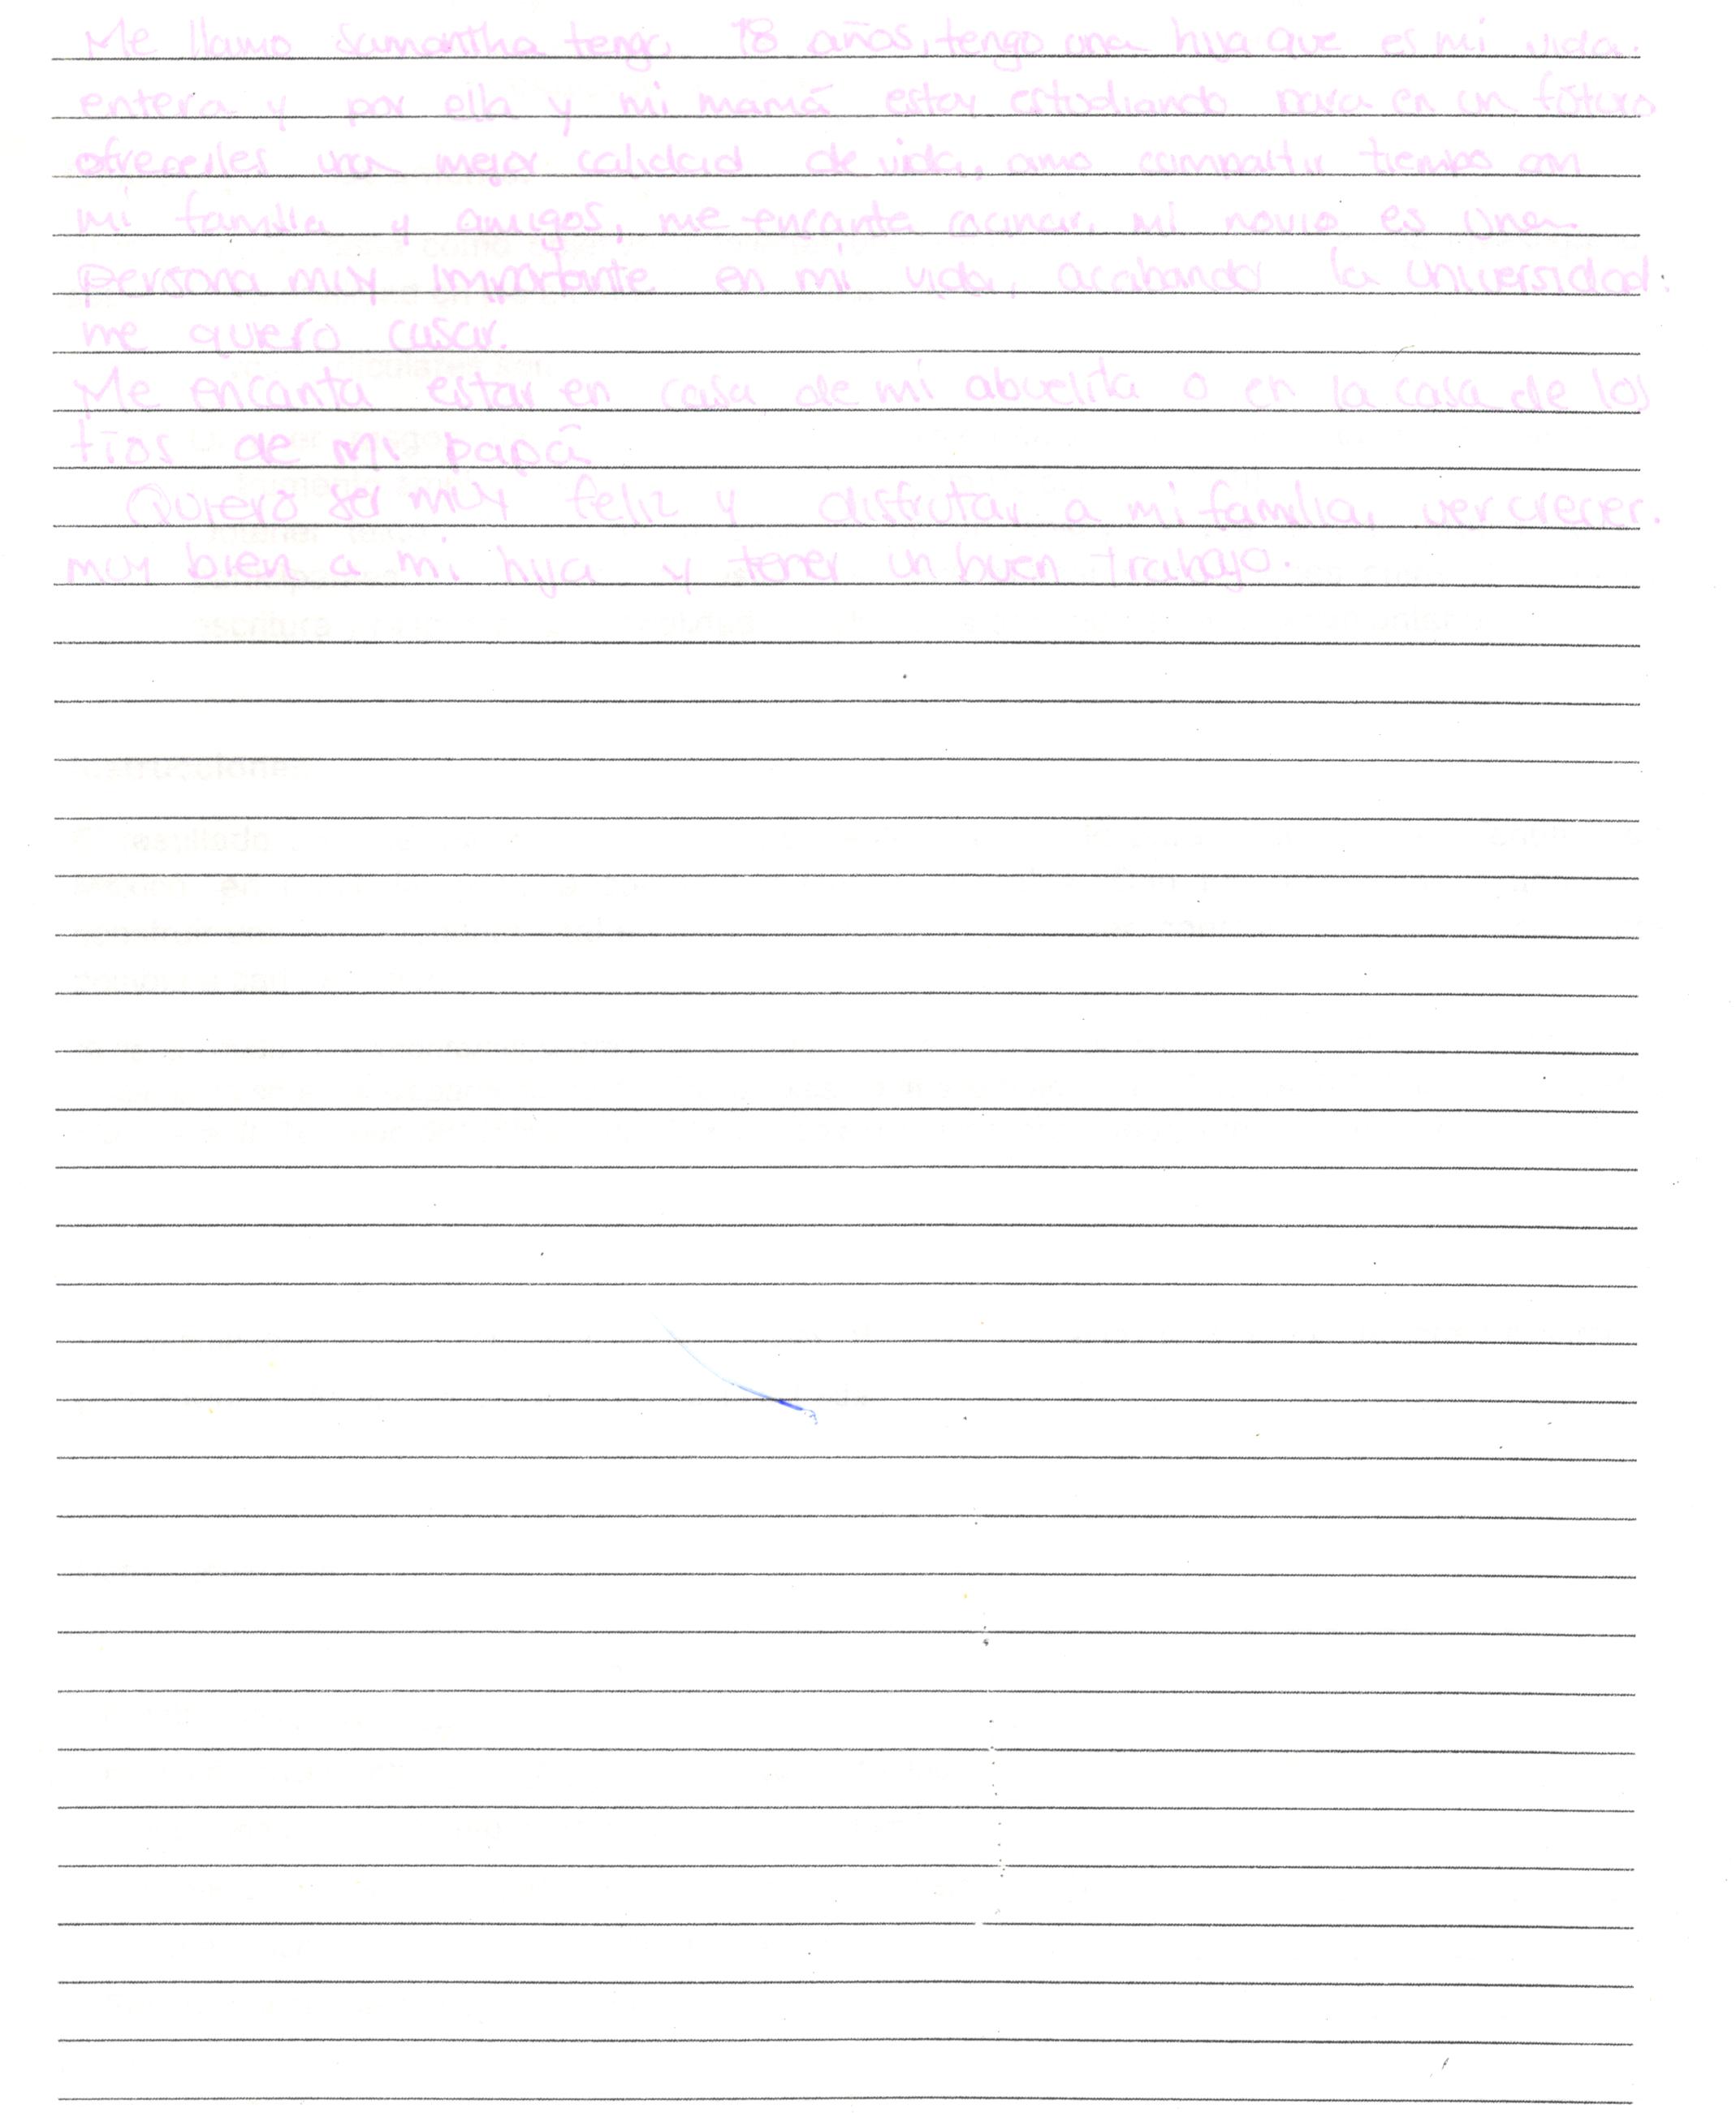 Me llamo Samantha tengo 18 años, tengo una hija que es mi vida.
entera y por ella y mi mamá estoy estudiando para en un futuro
ofrecerles una mejor calidad de vida, amo compartir tiempo con
mi familia y amigos, me encanta cocinar, mi novio es una
persona muy importante en mi vida, acabando la universidad.
me quiero casar.
Me encanta estar en casa de mi abuelita o en la casa de los
tíos de mi papá
Quiero ser muy feliz y disfrutar a mi familia, ver crecer.
muy bien a mi hija y tener un buen trabajo.